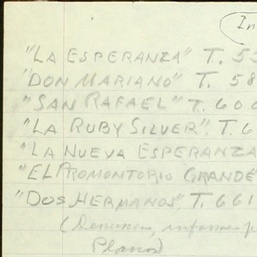 In
"LA ESPERANZA" T. 55
"DON MARIANO" T. 58
"SAN RAFAEL" T. 606
"LA RUBY SILVER", T. 6
"LA NUEVA ESPERANZA
"EL PROMONTORIO GRANDE"
"DOS HERMANOS" T. 661
(Denuncia, informes y
Planos)